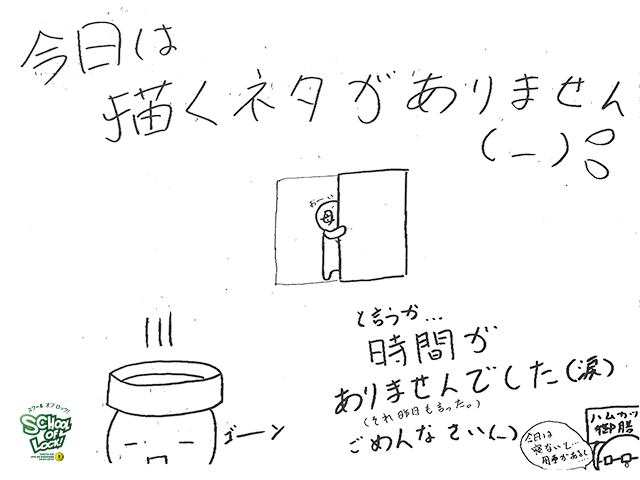 今日は
描くネタがありません
(ー)
おーい
と言うか…
時間が
ありませんでした(涙)
(それ昨日も言った。)
ごめんなさい(ー)
ゴーン
ハムカツ
御膳
今日は
寝ないと…
用事があるし
スクール オブ ロック!
SCHOOL
OF
LOCK!